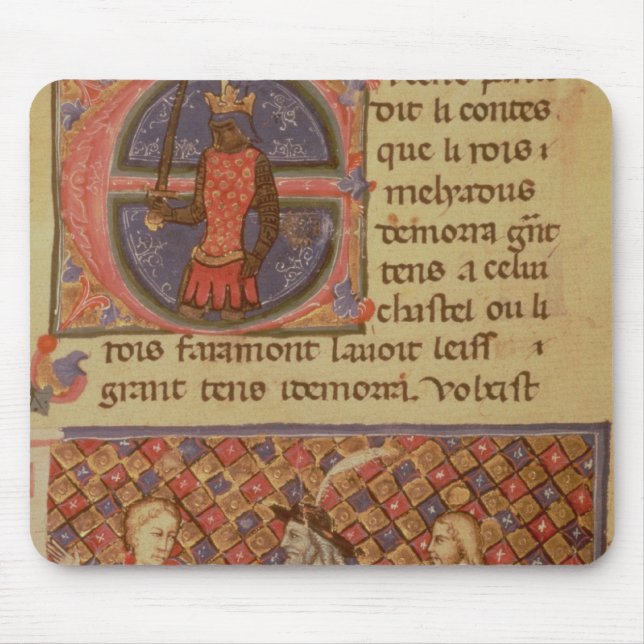 dit li contes
que li rois i
melyadus
demorra gñt
tens a celui
chastel ou li
rois faramont lauoit leiss i
grant tens idemorra. Voleist